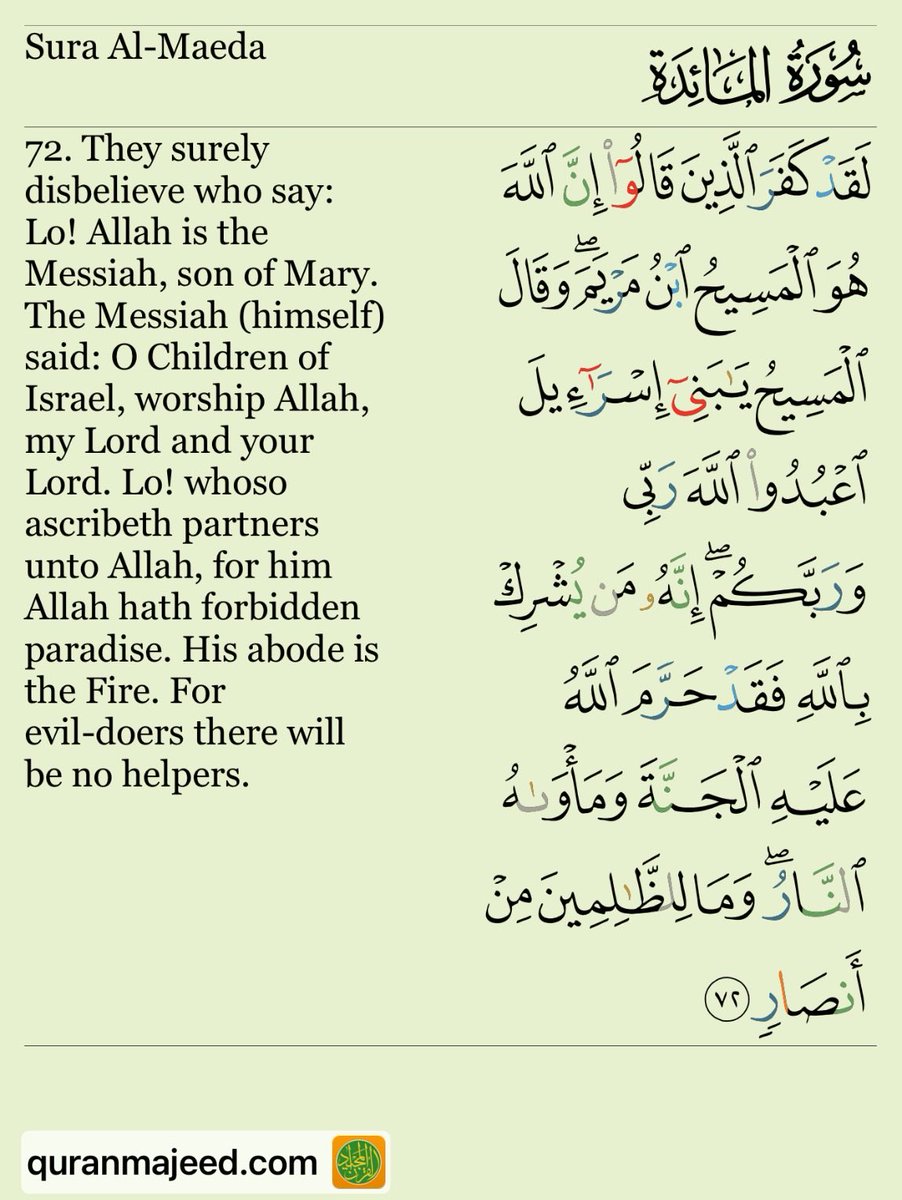 Sura Al-Maeda
سُورَةُ المَائِدَةِ
72. They surely
disbelieve who say:
Lo! Allah is the
Messiah, son of Mary.
The Messiah (himself)
said: O Children of
Israel, worship Allah,
my Lord and your
Lord. Lo! whoso
ascribeth partners
unto Allah, for him
Allah hath forbidden
paradise. His abode is
the Fire. For
evil-doers there will
be no helpers.
لَقَدۡ كَفَرَ ٱلَّذِينَ قَالُوٓاْ إِنَّ ٱللَّهَ
هُوَ ٱلۡمَسِيحُ ٱبۡنُ مَرۡيَمَۖ وَقَالَ
ٱلۡمَسِيحُ يَٰبَنِيٓ إِسۡرَٰٓءِيلَ
ٱعۡبُدُواْ ٱللَّهَ رَبِّي
وَرَبَّكُمۡۖ إِنَّهُۥ مَن يُشۡرِكۡ
بِٱللَّهِ فَقَدۡ حَرَّمَ ٱللَّهُ
عَلَيۡهِ ٱلۡجَنَّةَ وَمَأۡوَىٰهُ
ٱلنَّارُۖ وَمَا لِلظَّٰلِمِينَ مِنۡ
أَنصَارٖ ٧٢
quranmajeed.com